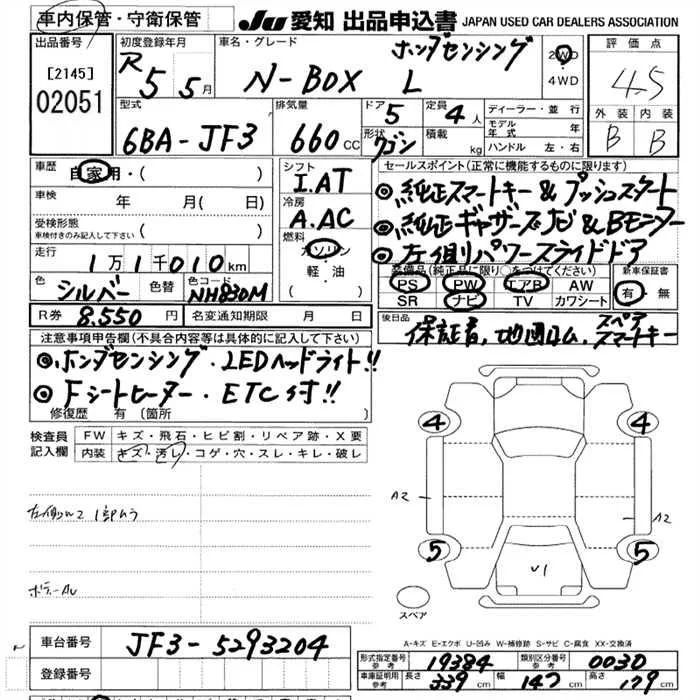 車内保管・守衛保管
JU 愛知 出品申込書 JAPAN USED CAR DEALERS ASSOCIATION
出品番号 初度登録年月 車名・グレード ホンダセンシング 2WD 4WD 評価点
[2145] 02051 R5 5月 N-BOX L 4.5
型式 排気量 ドア 5 定員 4人 ディーラー・並行 外装 内装
6BA-JF3 660cc 形状 ワゴン 積載 kg モデル年式 年 ハンドル 左・右 B B
車歴 自家用・( ) シフト I.AT セールスポイント(正常に機能するものに限ります)
車検 年 月( 日) 冷房 A.AC ◎純正スマートキー&プッシュスタート
受検形態 車検付きのみ記入して下さい ( ) 燃料 ガソリン・軽・油 ( ) ◎純正ギャザーズナビ&Bモニター
◎左側パワースライドドア
走行 1万1千010km 装備品(純正品に限り○をつけてください) 新車保証書
色 シルバー 色替 色コード NH830M PS PW エアB AW 有・無
SR ナビ TV カワシート
R券 8.550円 名変通知期限 月 日 後日品 保証書,地図ロム,スペアスマートキー
注意事項申告欄(不具合内容等は具体的に記入して下さい)
◎ホンダセンシング・LEDヘッドライト!!
◎Fシートヒーター・ETC付!!
修復歴 有 (箇所 )
検査員記入欄 FW キズ・飛石・ヒビ割・リペア跡・X要
内装 キズ・汚レ・コゲ・穴・スレ・キレ・破レ
4 4
A2 A2
1部ムラ
5 5
U1
スペア
A-キズ E-エクボ U-凹み W-補修跡 S-サビ C-腐食 XX-交換済
車台番号 JF3-5293204
登録番号
形式指定番号 参考 19384 類別区分番号 参考 0030
車庫証明用 参考 長さ 339cm 幅 147cm 高さ 179cm